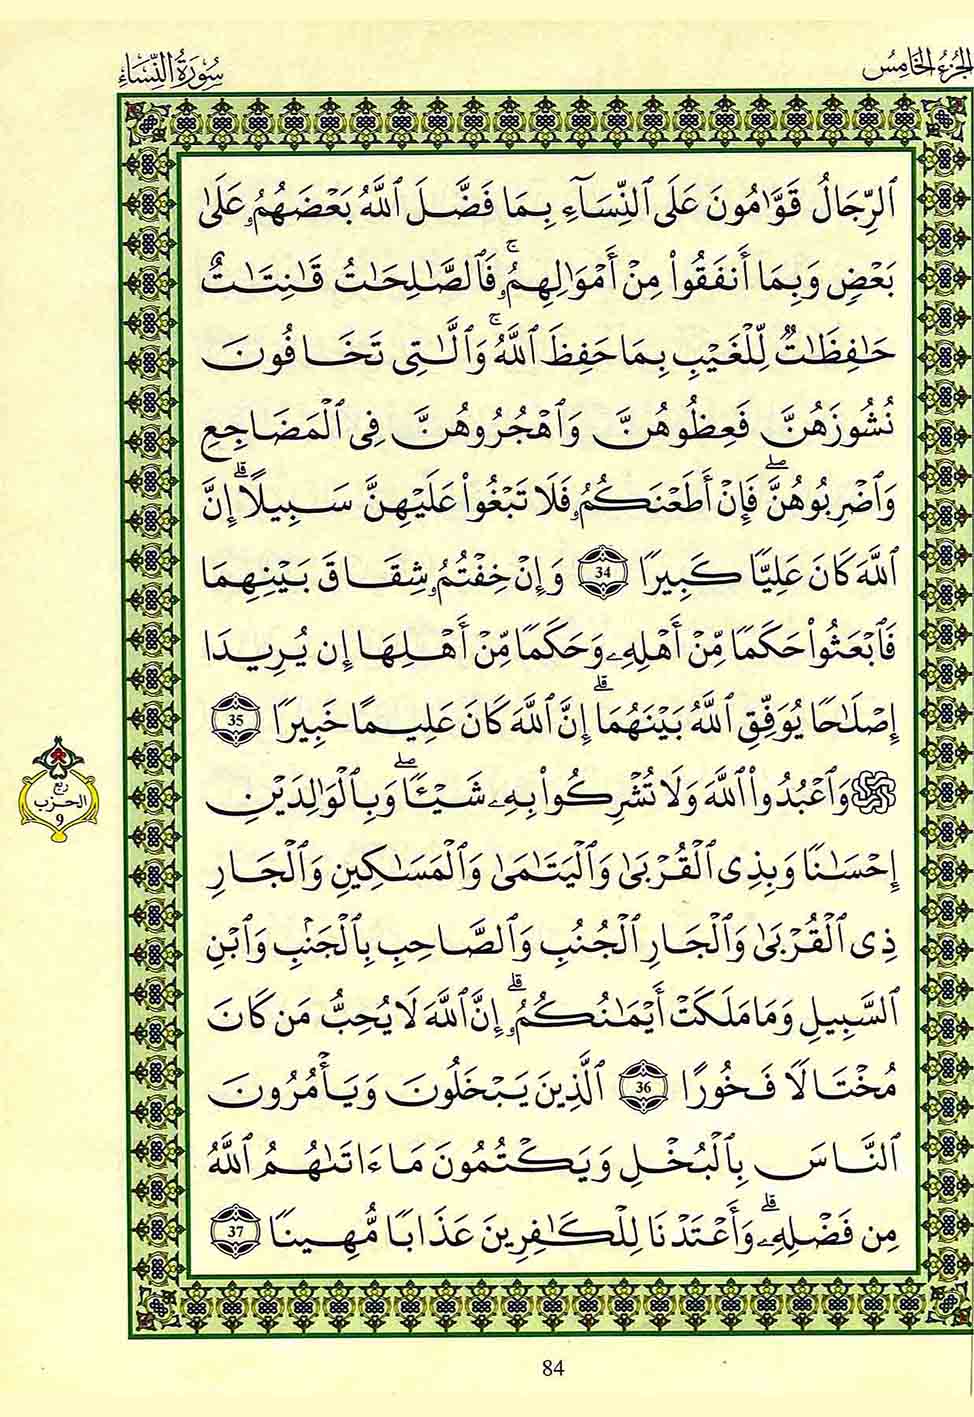 الجزء الخامس
سورة النساء
اَ۬لرِّجَالُ قَوَّٰمُونَ عَلَى اَ۬لنِّسَآءِ بِمَا فَضَّلَ اَ۬للَّهُ بَعْضَهُمُۥ عَلَىٰ
بَعْضٖ وَبِمَا أَنفَقُواْ مِنْ أَمْوَٰلِهِمُۥۚ فَالصَّٰلِحَٰتُ قَٰنِتَٰتٌ
حَٰفِظَٰتٞ لِّلْغَيْبِ بِمَا حَفِظَ اَ۬للَّهُۚ وَاَلَّٰتِي تَخَافُونَ
نُشُوزَهُنَّ فَعِظُوهُنَّ وَاَهْجُرُوهُنَّ فِي اِ۬لْمَضَاجِعِ
وَاَضْرِبُوهُنَّۖ فَإِنْ أَطَعْنَكُمُۥ فَلَا تَبْغُواْ عَلَيْهِنَّ سَبِيلًاۗ إِنَّ
اَ۬للَّهَ كَانَ عَلِيّٗا كَبِيرٗا 34 وَإِنْ خِفْتُمُۥ شِقَاقَ بَيْنِهِمَا
فَابْعَثُواْ حَكَمٗا مِّنْ أَهْلِهِۦ وَحَكَمٗا مِّنْ أَهْلِهَا إِن يُرِيدَا
إِصْلَٰحٗا يُوَفِّقِ اِ۬للَّهُ بَيْنَهُمَاۗ إِنَّ اَ۬للَّهَ كَانَ عَلِيمًا خَبِيرٗا 35
۞ وَاَعْبُدُواْ اُ۬للَّهَ وَلَا تُشْرِكُواْ بِهِۦ شَيْـٔٗاۖ وَبِالْوَٰلِدَيْنِ
إِحْسَٰنٗا وَبِذِي اِ۬لْقُرْبَىٰ وَالْيَتَٰمَىٰ وَالْمَسَٰكِينِ وَالْجَارِ
ذِي اِ۬لْقُرْبَىٰ وَالْجَارِ اِ۬لْجُنُبِ وَالصَّاحِبِ بِالْجَنۢبِ وَابْنِ
اِ۬لسَّبِيلِ وَمَا مَلَكَتْ أَيْمَٰنُكُمُۥۗ إِنَّ اَ۬للَّهَ لَا يُحِبُّ مَن كَانَ
مُخْتَالٗا فَخُورًا 36 اَ۬لَّذِينَ يَبْخَلُونَ وَيَأْمُرُونَ
اَ۬لنَّاسَ بِالْبُخْلِ وَيَكْتُمُونَ مَا ءَاتَىٰهُمُ اُ۬للَّهُ
مِن فَضْلِهِۦۗ وَأَعْتَدْنَا لِلْكَٰفِرِينَ عَذَابٗا مُّهِينٗا 37
ربع
الحزب
9
84